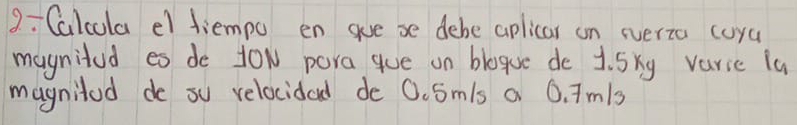 2.- Calcula el tiempo en que se debe aplicar un fuerza cuya
magnitud es de 10N para que un bloque de 1.5Kg varie la
magnitud de su velocidad de 0.5m/s a 0.7m/s